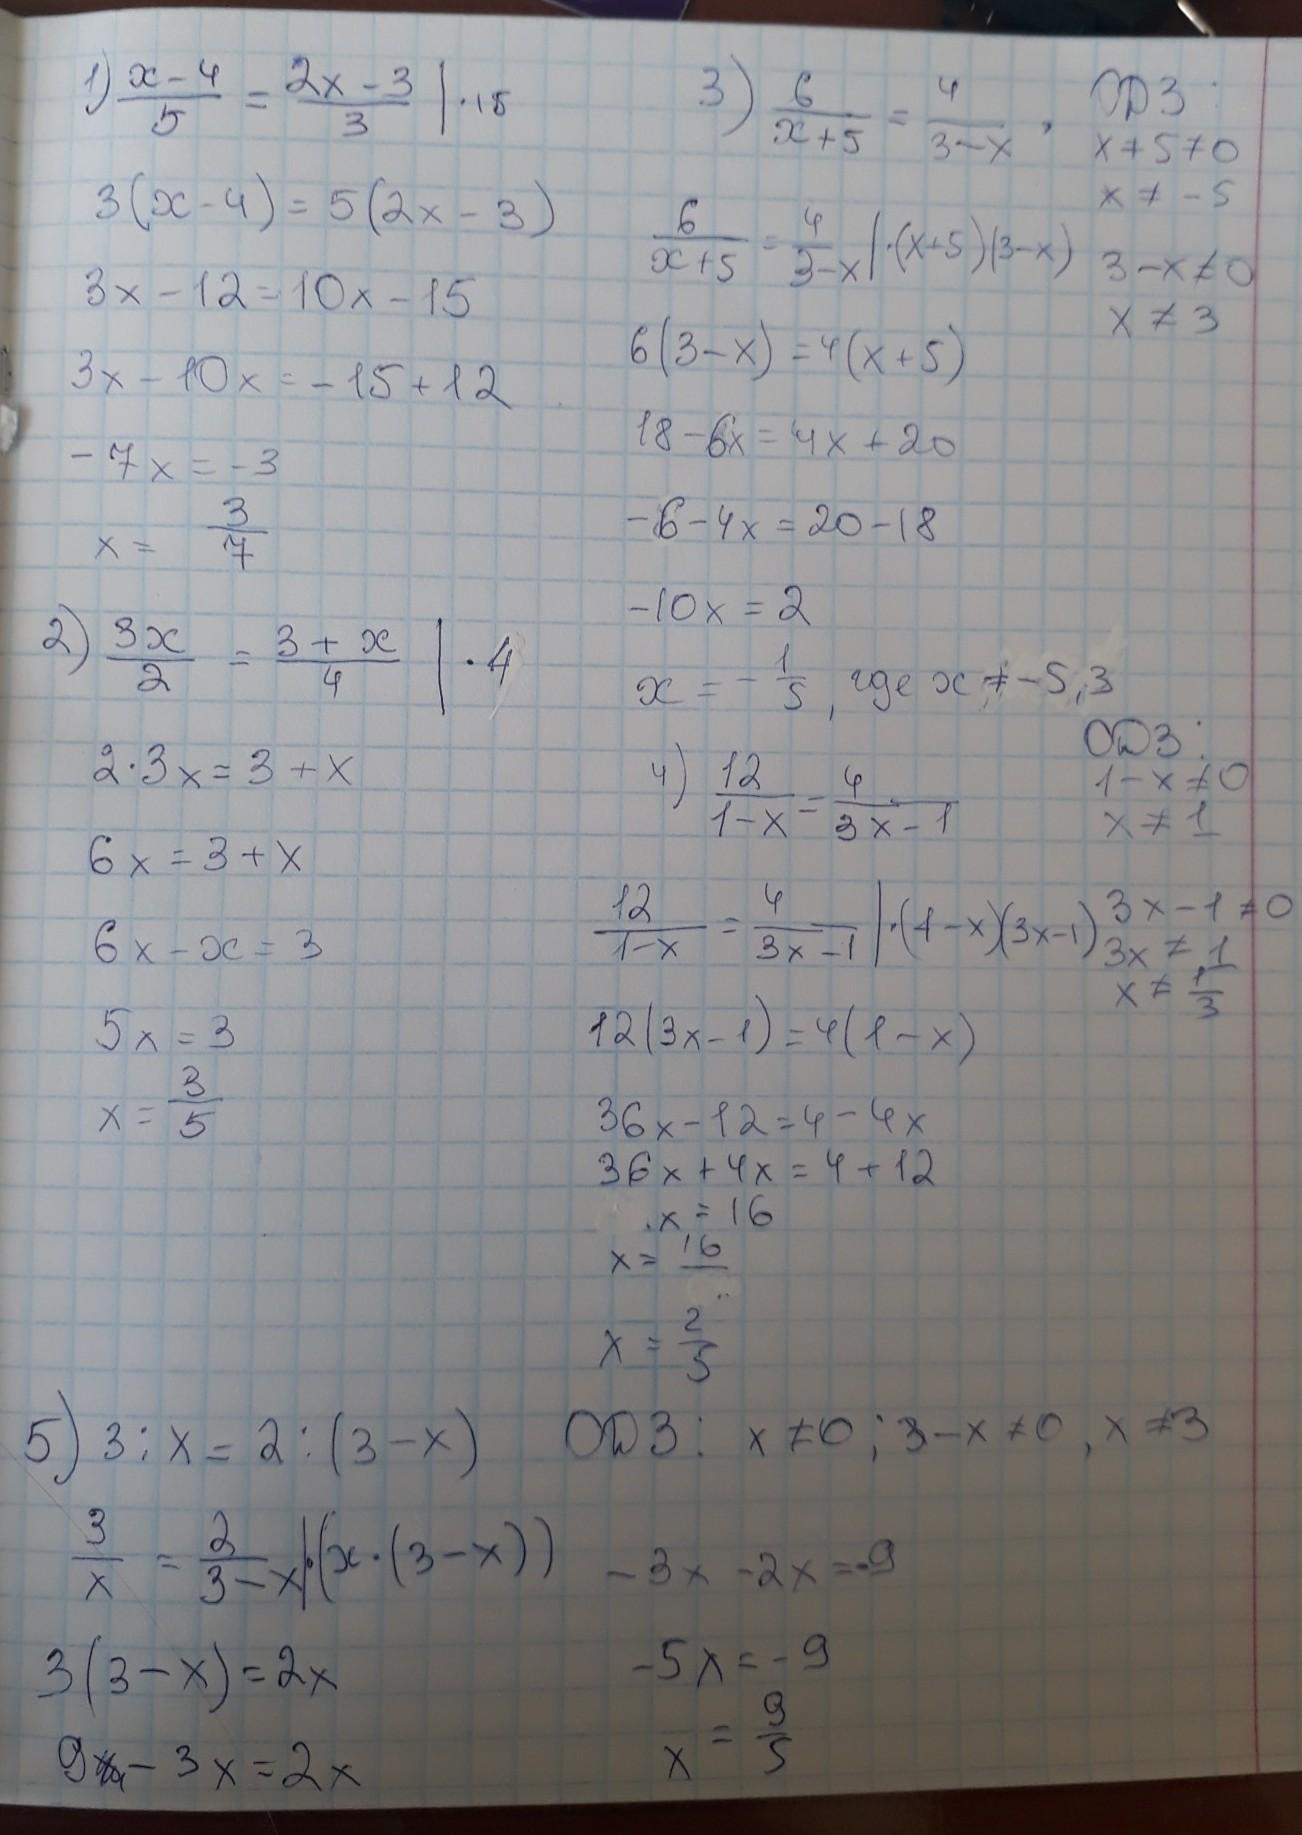 1) (x-4)/5 = (2x-3)/3 | ·15
3(x-4) = 5(2x-3)
3x-12=10x-15
3x-10x=-15+12
-7x=-3
x= 3/7
2) 3x/2 = (3+x)/4 | ·4
2·3x=3+x
6x=3+x
6x-x=3
5x=3
x=3/5
3) 6/(x+5) = 4/(3-x), ОДЗ:
x+5≠0
x≠-5
3-x≠0
x≠3
6/(x+5) = 4/(3-x) | ·(x+5)(3-x)
6(3-x)=4(x+5)
18-6x=4x+20
-6-4x=20-18
-10x=2
x=-1/5, где x≠-5,3
4) 12/(1-x) = 4/(3x-1)
ОДЗ:
1-x≠0
x≠1
3x-1≠0
3x≠1
x≠1/3
12/(1-x) = 4/(3x-1) | ·(1-x)(3x-1)
12(3x-1)=4(1-x)
36x-12=4-4x
36x+4x=4+12
x=16
x=16/
x=2/5
5) 3:x=2:(3-x) ОДЗ: x≠0; 3-x≠0, x≠3
3/x = 2/(3-x) | ·(x·(3-x))
3(3-x)=2x
9-3x=2x
-3x-2x=-9
-5x=-9
x=9/5